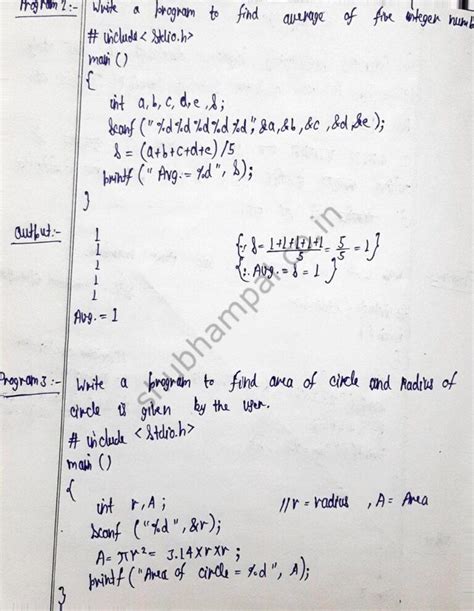 Program 2:- Write a program to find average of five integer numb
# include < Stdio.h>
main ()
{
int a, b, c, d, e, s;
Scanf ("%d %d %d %d %d", &a, &b, &c, &d, &e);
s = (a+b+c+d+e) /5
printf (" Avg. = %d", s);
}
output:- 1
1
1
1
1
Avg. = 1
{∵ s = 1+1+1+1+1/5 = 5/5 = 1}
{∴ Avg. = s = 1 }
shubhampal.co.in
Program 3:- Write a program to find area of circle and radius of
circle is given by the user.
# include < Stdio.h>
main ()
{
int r, A ; //r = radius , A = Area
Scanf ("%d", &r);
A = πr² = 3.14×r×r ;
printf ("Area of circle = %d", A);
}